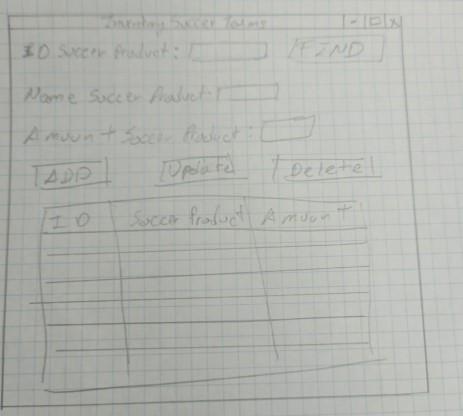 Inventory Soccer Teams - □ x
ID Soccer Product: FIND
Name Soccer Product:
Amount Soccer Product:
ADD Update Delete
ID Soccer Product Amount